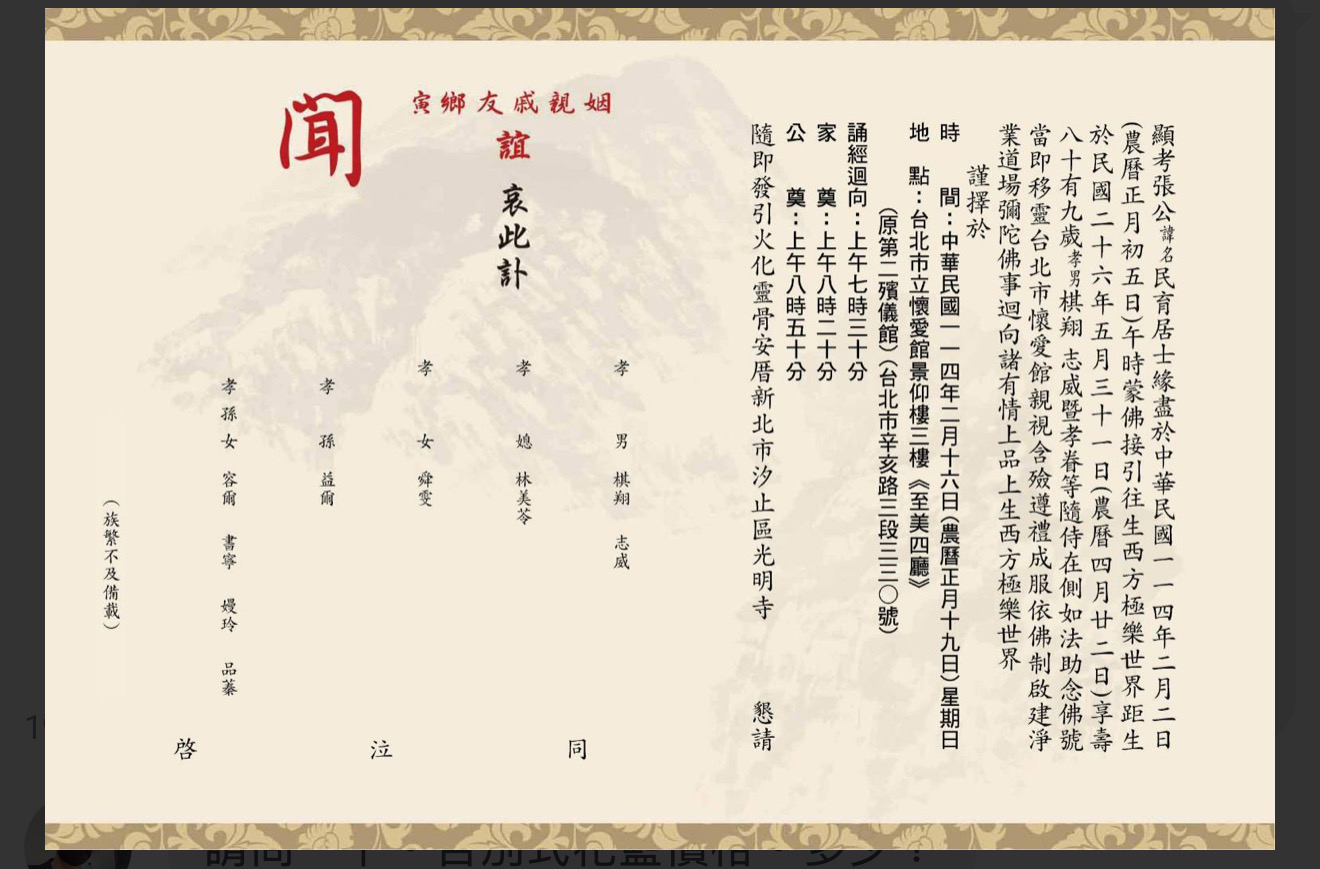 顯考張公諱名民育居士緣盡於中華民國一一四年二月二日
(農曆正月初五日)午時蒙佛接引往生西方極樂世界距生
於民國二十六年五月三十一日(農曆四月廿二日)享壽
八十有九歲孝男棋翔 志威暨孝眷等隨侍在側如法助念佛號
當即移靈台北市懷愛館親視含殮遵禮成服依佛制啟建淨
業道場彌陀佛事迴向諸有情上品上生西方極樂世界
謹擇於
時 間：中華民國一一四年二月十六日(農曆正月十九日)星期日
地 點：台北市立懷愛館景仰樓三樓《至美四廳》
(原第二殯儀館)(台北市辛亥路三段三三○號)
誦經迴向：上午七時三十分
家 奠：上午八時二十分
公 奠：上午八時五十分
隨即發引火化靈骨安厝新北市汐止區光明寺 懇請
姻親戚友鄉寅
誼 哀此訃
聞
孝 男 棋翔 志威
孝 媳 林美苓
孝 女 舜雯
孝 孫 益爾
孝孫女 容爾 書寧 嫚玲 品蓁
(族繁不及備載)
同 泣 啓